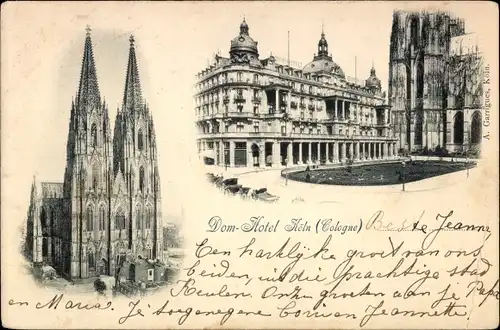 A. Garrigues, Köln.
Dom-Hotel Köln (Cologne) Beste Jeanne,
Een hartelijke groet van ons
beiden, uit die prachtige stad
Keulen. Onze groeten aan je Papa
en Maria. Je toegenegene Jeannette